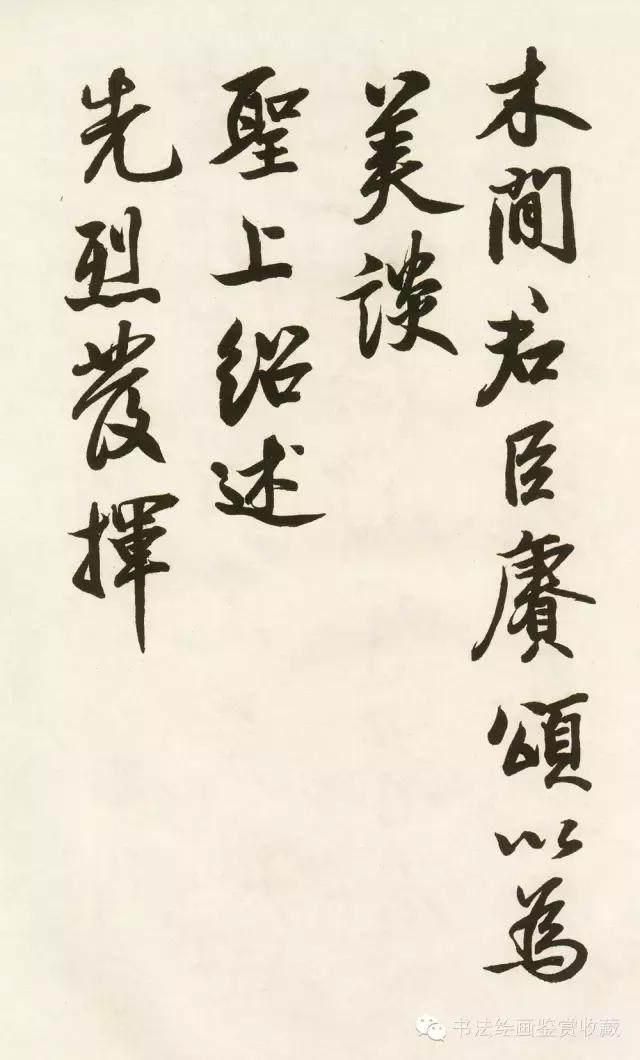 木間君臣賡頌以為
美談
聖上紹述
先烈發揮
书法绘画鉴赏收藏